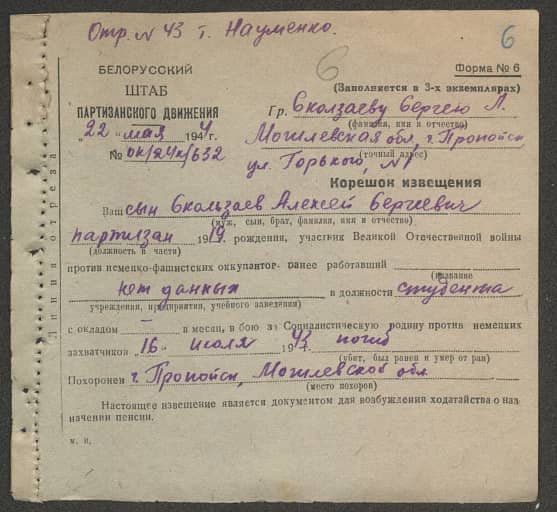 Отр. № 43 т. Науменко.
6
6
БЕЛОРУССКИЙ
ШТАБ
ПАРТИЗАНСКОГО ДВИЖЕНИЯ
„22 „ мая 1944
№ ок/24к/632
Форма № 6
(Заполняется в 3-х экземплярах)
Гр. Скользаеву Сергею Л.
(фамилия, имя и отчество)
Могилевская обл, г. Пропойск
(точный адрес)
ул. Горького, №1
Линия отреза
Корешок извещения
Ваш сын Скользаев Алексей Сергеевич
(муж, сын, брат, фамилия, имя и отчество)
партизан 1919. рождения, участник Великой Отечественной войны
(должность в части)
против немецко-фашистских оккупантор- ранее работавший
(название
нет данных в должности студента
учреждения, предприятия, учебного заведения)
с окладом — в месяц, в бою за Социалистическую родину против немецких
захватчиков "16 " июля 1943 погиб
(убит, был ранен и умер от ран)
Похоронен г. Пропойск, Могилевской обл.
(место похорон)
Настоящее извещение является документом для возбуждения ходатайства о назначении пенсии.
м. п.